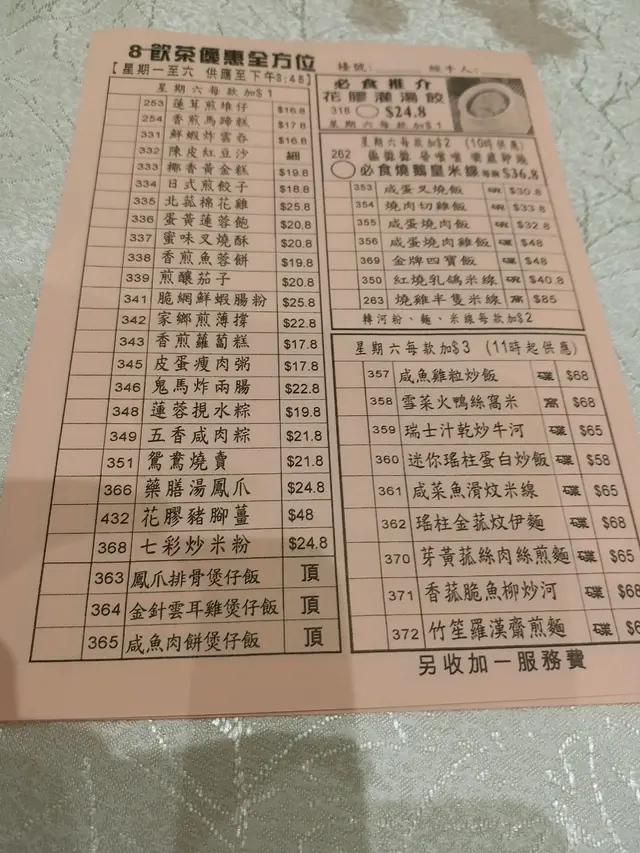 8 飲茶優惠全方位
檯號:
經手人:
【星期一至六 供應至下午3:45】
星期六每款加$1
253 蓮茸煎堆仔 $16.8
254 香煎馬蹄糕 $17.8
331 鮮蝦炸雲吞 $16.8
332 陳皮紅豆沙 細
333 椰香黃金糕 $19.8
334 日式煎餃子 $18.8
335 北菰棉花雞 $25.8
336 蛋黃蓮蓉飽 $20.8
337 蜜味叉燒酥 $20.8
338 香煎魚蓉餅 $19.8
339 煎釀茄子 $20.8
341 脆網鮮蝦腸粉 $25.8
342 家鄉煎薄撐 $22.8
343 香煎蘿蔔糕 $17.8
345 皮蛋瘦肉粥 $17.8
346 鬼馬炸兩腸 $22.8
348 蓮蓉挸水粽 $19.8
349 五香咸肉粽 $21.8
351 鴛鴦燒賣 $21.8
366 藥膳湯鳳爪 $24.8
432 花膠豬腳薑 $48
368 七彩炒米粉 $24.8
363 鳳爪排骨煲仔飯 頂
364 金針雲耳雞煲仔飯 頂
365 咸魚肉餅煲仔飯 頂
必食推介
花膠灌湯餃
318 $24.8
星期六每款加$1
星期六每款加$2 (10時供應)
262 必食燒鵝皇米線 $36.8
353 咸蛋叉燒飯 碗 $30.8
354 燒肉切雞飯 碗 $33.8
355 咸蛋燒肉飯 碗 $32.8
356 咸蛋燒肉雞飯 碟 $48
369 金牌四寶飯 碟 $48
350 紅燒乳鴿米線 碗 $40.8
263 燒雞半隻米線 窩 $85
轉河粉、麵、米線每款加$2
星期六每款加$3 (11時起供應)
357 咸魚雞粒炒飯 碟 $68
358 雪菜火鴨絲窩米 窩 $68
359 瑞士汁乾炒牛河 碟 $65
360 迷你瑤柱蛋白炒飯 碟 $58
361 咸菜魚滑炆米線 碟 $65
362 瑤柱金菰炆伊麵 碟 $68
370 芽黃菰絲肉絲煎麵 碟 $65
371 香菰脆魚柳炒河 碟 $68
372 竹笙羅漢齋煎麵 碟
另收加一服務費